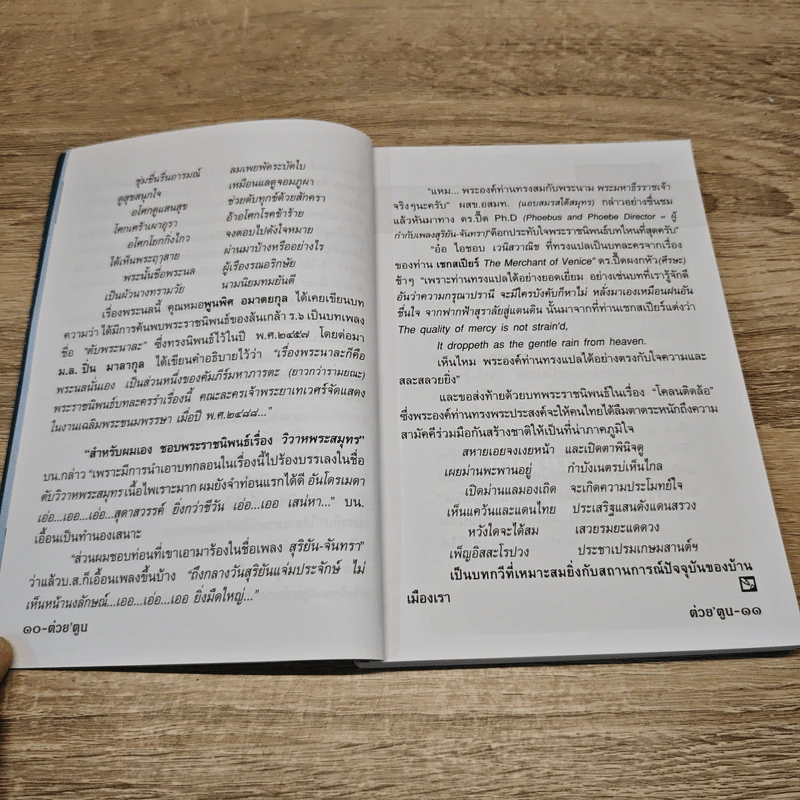 ชุ่มชื่นรื่นอารมณ์ ลมเพยพัดระบัดใบ
ดูสุขสนุกใจ เหมือนแลดูจอมภูผา
อโศกดูแสนสุข ช่วยดับทุกข์ด้วยสักครา
โศกเศร้าเผาอุรา อ้าอโศกโรคข้าร้าย
อโศกโยกกิ่งไกว จงตอบไปดังใจหมาย
ได้เห็นพระฤๅสาย ผ่านมาบ้างหรืออย่างไร
พระนั้นชื่อพระนล ผู้เรืองรณอริกษัย
เป็นผัวนางทรามวัย นามนิยมทมยันตี
เรื่องพระนลนี้ คุณหมอพูนพิศ อมาตยกุล ได้เคยเขียนบท
ความว่า ได้มีการค้นพบพระราชนิพนธ์ของล้นเกล้า ร.๖ เป็นบทเพลง
ชื่อ “ตับพระนาละ” ซึ่งทรงนิพนธ์ไว้ในปี พ.ศ.๒๔๕๗ โดยต่อมา
ม.ล. ปิ่น มาลากุล ได้เขียนคำอธิบายไว้ว่า “เรื่องพระนาละก็คือ
พระนลนั่นเอง เป็นส่วนหนึ่งของคัมภีร์มหาภารตะ (ยาวกว่ารามยณะ)
พระราชนิพนธ์บทละครรำเรื่องนี้ คณะละครเจ้าพระยาเทเวศร์จัดแสดง
ในงานเฉลิมพระชนมพรรษา เมื่อปี พ.ศ.๒๔๘๘...”
“สำหรับผมเอง ชอบพระราชนิพนธ์เรื่อง วิวาหพระสมุทร”
บน.กล่าว “เพราะมีการนำเอาบทกลอนในเรื่องนี้ไปร้องบรรเลงในชื่อ
ตับวิวาหพระสมุทรเนื้อไพเราะมาก ผมยังจำท่อนแรกได้ดี อันโดรเมดา
เอ๋อ...เออ...เอ่อ...สุดาสวรรค์ ยิ่งกว่าชีวัน เอ่อ...เออ เสน่หา...” บน.
เอื้อนเป็นทำนองเสนาะ
“ส่วนผมชอบท่อนที่เขาเอามาร้องในชื่อเพลง สุริยัน-จันทรา”
ว่าแล้วบ.ส.ก็เอื้อนเพลงขึ้นบ้าง “ถึงกลางวันสุริยันแจ่มประจักษ์ ไม่
เห็นหน้านงลักษณ์...เออ...เอ่อ...เออ ยิ่งมืดใหญ่...”
๑๐-ต่วย'ตูน
“แหม... พระองค์ท่านทรงสมกับพระนาม พระมหาธีรราชเจ้า
จริงๆนะครับ” ผสข.อสมท. (แอบสมรสได้สมุทร) กล่าวอย่างชื่นชม
แล้วหันมาทาง ดร.ปี๊ด Ph.D (Phoebus and Phoebe Director – ผู้
กำกับเพลงสุริยัน-จันทรา)“ด็อกประทับใจพระราชนิพนธ์บทไหนที่สุดครับ”
“อ๋อ ไอชอบ เวนิสวาณิช ที่ทรงแปลเป็นบทละครจากเรื่อง
ของท่าน เชกสเปียร์ The Merchant of Venice” ดร.ปี๊ดผงกหัว(ศีรษะ)
ช้าๆ “เพราะท่านทรงแปลได้อย่างยอดเยี่ยม อย่างเช่นบทที่เรารู้จักดี
อันว่าความกรุณาปรานี จะมีใครบังคับก็หาไม่ หลั่งมาเองเหมือนฝนอัน
ชื่นใจ จากฟากฟ้าสุราลัยสู่แดนดิน นั้นมาจากที่ท่านเชกสเปียร์แต่งว่า
The quality of mercy is not strain'd,
It droppeth as the gentle rain from heaven.
เห็นไหม พระองค์ท่านทรงแปลได้อย่างตรงกับใจความและ
สละสลวยยิ่ง”
และขอส่งท้ายด้วยบทพระราชนิพนธ์ในเรื่อง “โคลนติดล้อ”
ซึ่งพระองค์ท่านทรงพระประสงค์จะให้คนไทยได้ลืมตาตระหนักถึงความ
สามัคคีร่วมมือกันสร้างชาติให้เป็นที่น่าภาคภูมิใจ
สหายเอยจงเงยหน้า และเปิดตาพินิจดู
เผยม่านพะพานอยู่ กำบังเนตรบ่เห็นไกล
เปิดม่านแลมองเถิด จะเกิดความประโมทย์ใจ
เห็นแคว้นและแดนไทย ประเสริฐแสนดังแดนสรวง
หวังใดจะได้สม เสวยรมยะแดดวง
เพ็ญอิสสะโรปวง ประชาเปรมเกษมสานต์ฯ
เป็นบทกวีที่เหมาะสมยิ่งกับสถานการณ์ปัจจุบันของบ้าน
เมืองเรา
ต่วย'ตูน-๑๑